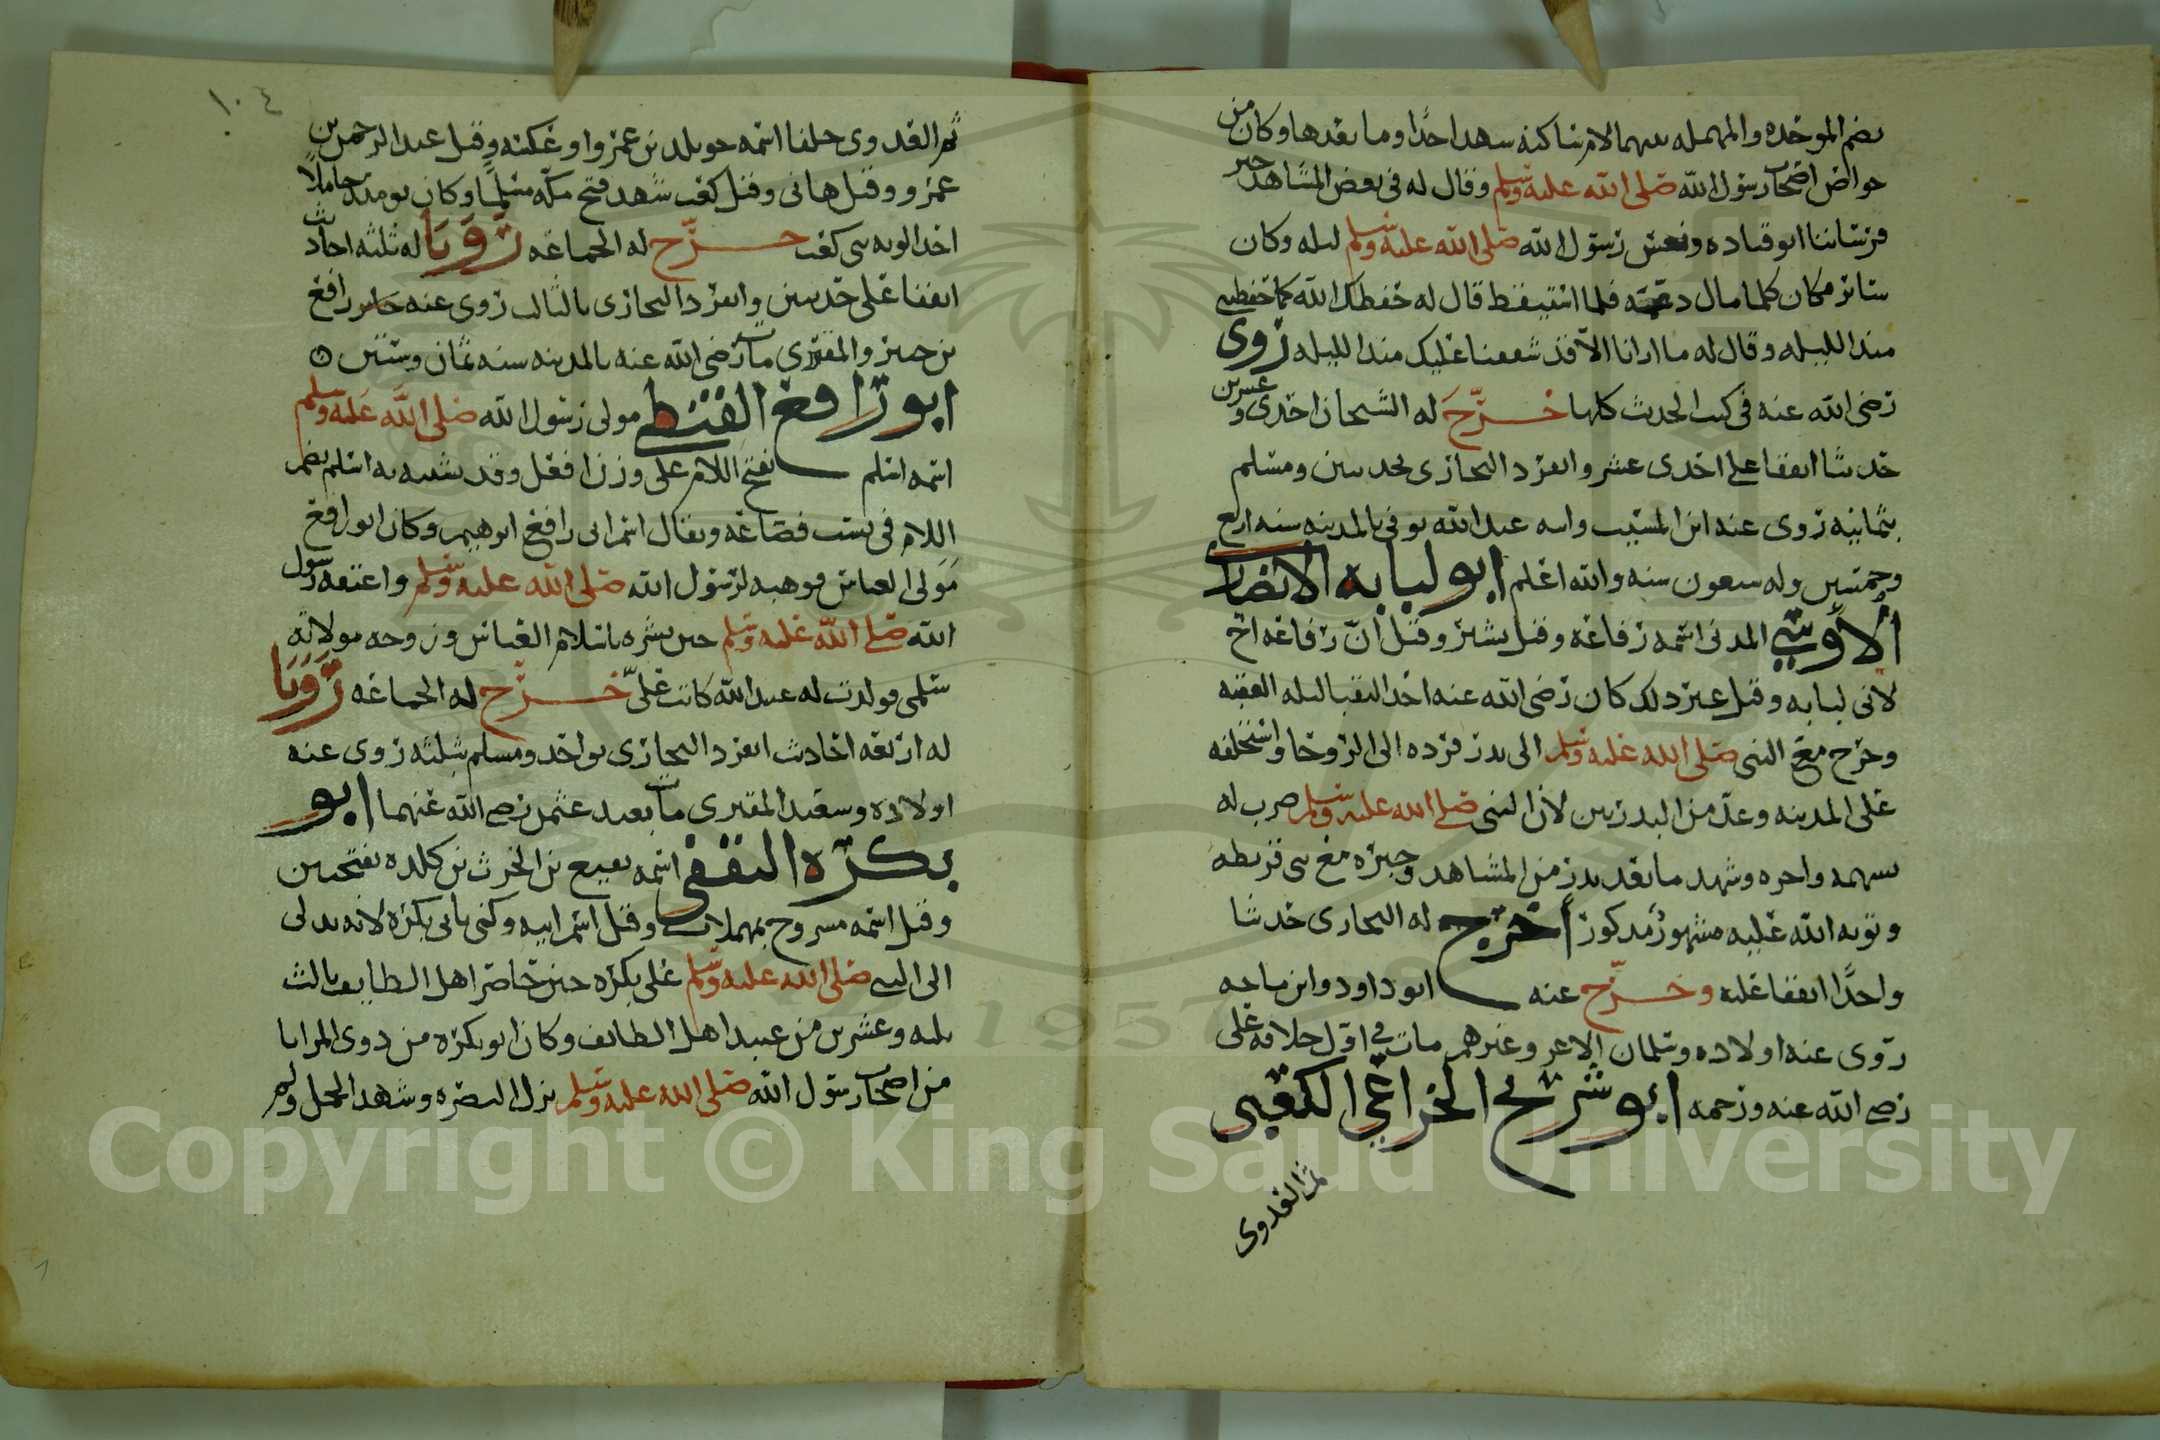 بضم الموحده والمهمله بينهما لام ساكنه شهد احدًا وما بعدها وكان من
خواص اصحاب رسول الله صلى الله عليه وسلم وقال له في بعض المشاهد خير
فرساننا ابو قتاده ونعس رسول الله صلى الله عليه وسلم ليله وكان
ساتر مكان كلما مال دعمه فلما استيقظ قال له حفظك الله كما حفظتني
منذ الليله وقال له ما ارانا الا قد شققنا عليك منذ الليله روى
رضى الله عنه في كتب الحديث كلها خرّج له الشيخان احدى وعشرين
حديثا اتفقا على احدى عشر وانفرد البخارى بحديثين ومسلم
بثمانيه روى عنه ابن المسيب وابنه عبد الله توفى بالمدينه سنه اربع
وخمسين وله سبعون سنه والله اعلم ابو لبابه الانصارى
الأوسي المدنى اسمه رفاعه وقيل بشير وقيل أنّ رفاعه اخ
لابى لبابه وقيل غير ذلك كان رضى الله عنه احد النقبا ليله العقبه
وخرج مع النبى صلى الله عليه وسلم الى بدر فرده الى الروحا واستخلفه
على المدينه وعدّ من البدريين لأن النبى صلى الله عليه وسلم ضرب له
بسهمه واجره وشهد ما بعد بدر من المشاهد وخبره مع بنى قريظه
وتوبه الله عليه مشهورٌ مذكور أخرج له البخارى حديثا
واحدًا اتفقا عليه وخرّج عنه ابو داود وابن ماجه
روى عنه اولاده وسلمان الاغر وغيرهم مات في اول خلافه على
رضى الله عنه ورحمه ابو شريح الخزاعي الكعبى
ثم العدوى
١٠٤
ثم العدوى حلفا اسمه خويلد بن عمرو او عكسه وقيل عبد الرحمن بن
عمرو وقيل هانى وقيل كعب شهد فتح مكه مسلمًا وكان يومئذ حاملًا
احد الويه بنى كعب خرّج له الجماعه رَوَيَا له ثلثه احاديث
اتفقا على حديثين وانفرد البخارى بالثالث روى عنه رافع
بن جبير والمقبرى مات رضى الله عنه بالمدينه سنه ثمان وستين
ابو رافع القبطي مولى رسول الله صلى الله عليه وسلم
اسمه اسلم بفتح اللام على وزن افعل وقد يشتبه به اسلم بضم
اللام في نسب قضاعه ويقال اسم ابى رافع ابرهيم وكان ابو رافع
مَولى العباس فوهبه لرسول الله صلى الله عليه وسلم واعتقه رسول
الله صلى الله عليه وسلم حين بشره باسلام العباس وزوجه مولاته
سلمى فولدت له عبيد الله كاتب علىّ خرّج له الجماعه رَوَيَا
له اربعه احاديث انفرد البخارى بواحد ومسلم بثلثه روى عنه
اولاده وسعيد المقبرى مات بعيد عثمن رضى الله عنهما ابو
بكرة الثقفى اسمه نفيع بن الحرث بن كلده بفتحتين
وقيل اسمه مسروح بمهملات وقيل اسم ابيه وكنى بابى بكره لانه تدلى
الى النبى صلى الله عليه وسلم على بكره حين حاصر اهل الطايف ثالث
ثلثه وعشرين من عبيد اهل الطائف وكان ابو بكره من ذوى المزايا
من اصحاب رسول الله صلى الله عليه وسلم نزل البصره وشهد الجمل ولم
Copyright © King Saud University
1957